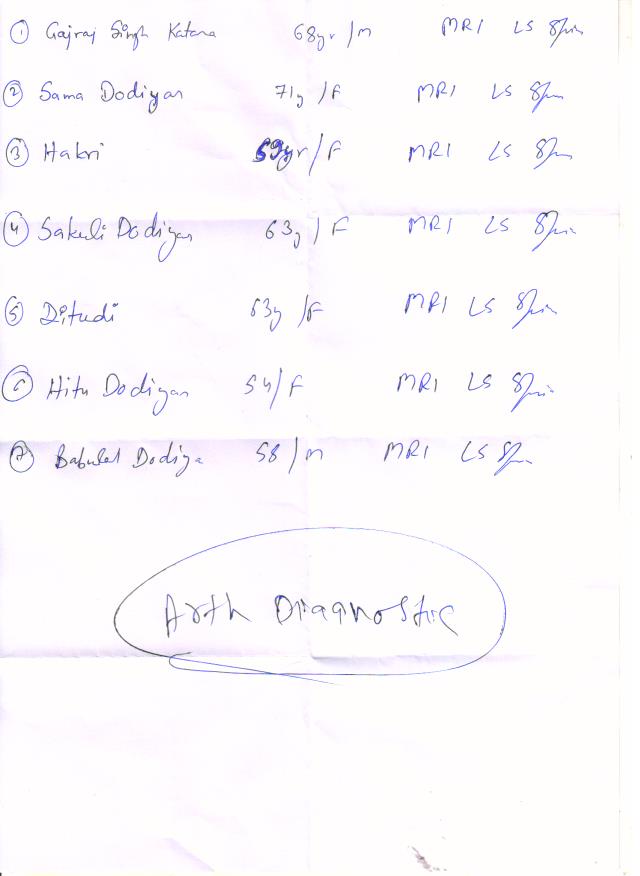 ① Gajraj Singh Katara 68yr/m MRI LS Spin
② Sama Dodiyar 71y/F MRI LS Spin
③ Hakri 59yr/F MRI LS Spin
④ Sakuli Dodiyar 63y/F MRI LS Spin
⑤ Ditudi 63y/F MRI LS Spin
⑥ Hitu Dodiyar 54/F MRI LS Spin
⑦ Babulal Dodiya 58/m MRI LS Spin
Arth Diagnostic